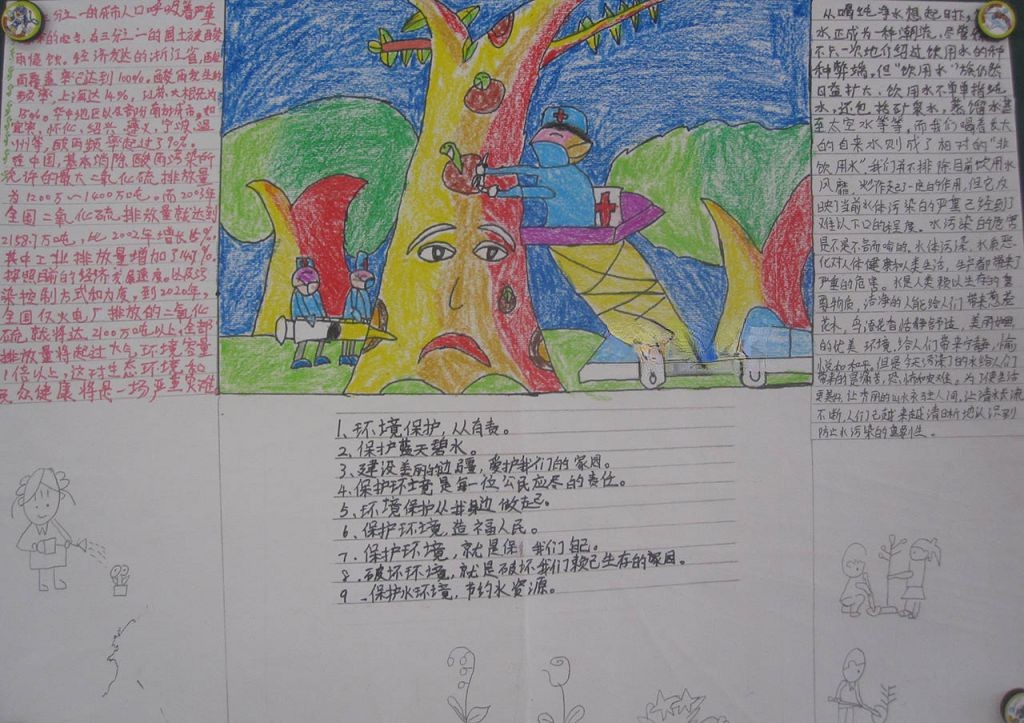 分之一的城市人口呼吸着严重
的空气,占三分之一的国土被酸
雨侵蚀。经济发达的浙江省,酸
雨覆盖率已达到100%。酸雨发生的
频率,上海达14%,
宜宾、怀化、绍兴、遵义、宁波、温
州等,酸雨频率超过了90%。
在中国,基本消除酸雨污染所
允许的最大二氧化硫排放量
为1200万~1400万吨。而2003年
全国二氧化硫排放量就达到
2158.7万吨,比2002年增长12%,
其中工业排放量增加了14.7%。
按照目前的经济发展速度,以及污
染控制方式和力度,到2020年,
全国仅火电厂排放的二氧化
硫就将达2100万吨以上,全部
排放量将超过大气环境容量
1倍以上,这对生态环境和
民众健康将是一场严重灾难
从喝纯净水想起时下,
水正成为一种潮流,尽管
不只一次地介绍过饮用水的种
种弊端,但“饮用水”族仍然
日益扩大、饮用水不单单指纯
水,还包括矿泉水,蒸馏水甚
至太空水等等,而我们喝着长大
的自来水则成了相对的“非
饮用水”。我们并不排除目前饮用水
风靡,炒作起了一定的作用,但它反
映了当前水体污染的严重已经到了
难以下口的程度。水污染的危害
是不言而喻的,水体污浊,水质恶
化对人体健康和人类生活,生产都带来了
严重的危害。水是人类赖以生存的重
要物质,洁净的水能给人们带来
花水,鸟语花香恬静舒适,美丽
的优美环境,给人们带来宁静,愉
悦和和平。但是今天污浊了的水给人们
带来的是痛苦,恐怖和灾难。为了使生活
更美好,让秀丽的山水永驻人间,让清水长流
不断,人们已越来越清晰地认识到
防止水污染的重要性。
1、环境保护,从有责。
2、保护蓝天碧水。
3、建设美丽的边疆,爱护我们的家园。
4、保护环境是每一位公民应尽的责任。
5、环境保护从我身边做起。
6、保护环境,造福人民。
7、保护环境,就是保 我们自己。
8、破坏环境,就是破坏我们赖已生存的家园。
9、保护水环境,节约水资源。